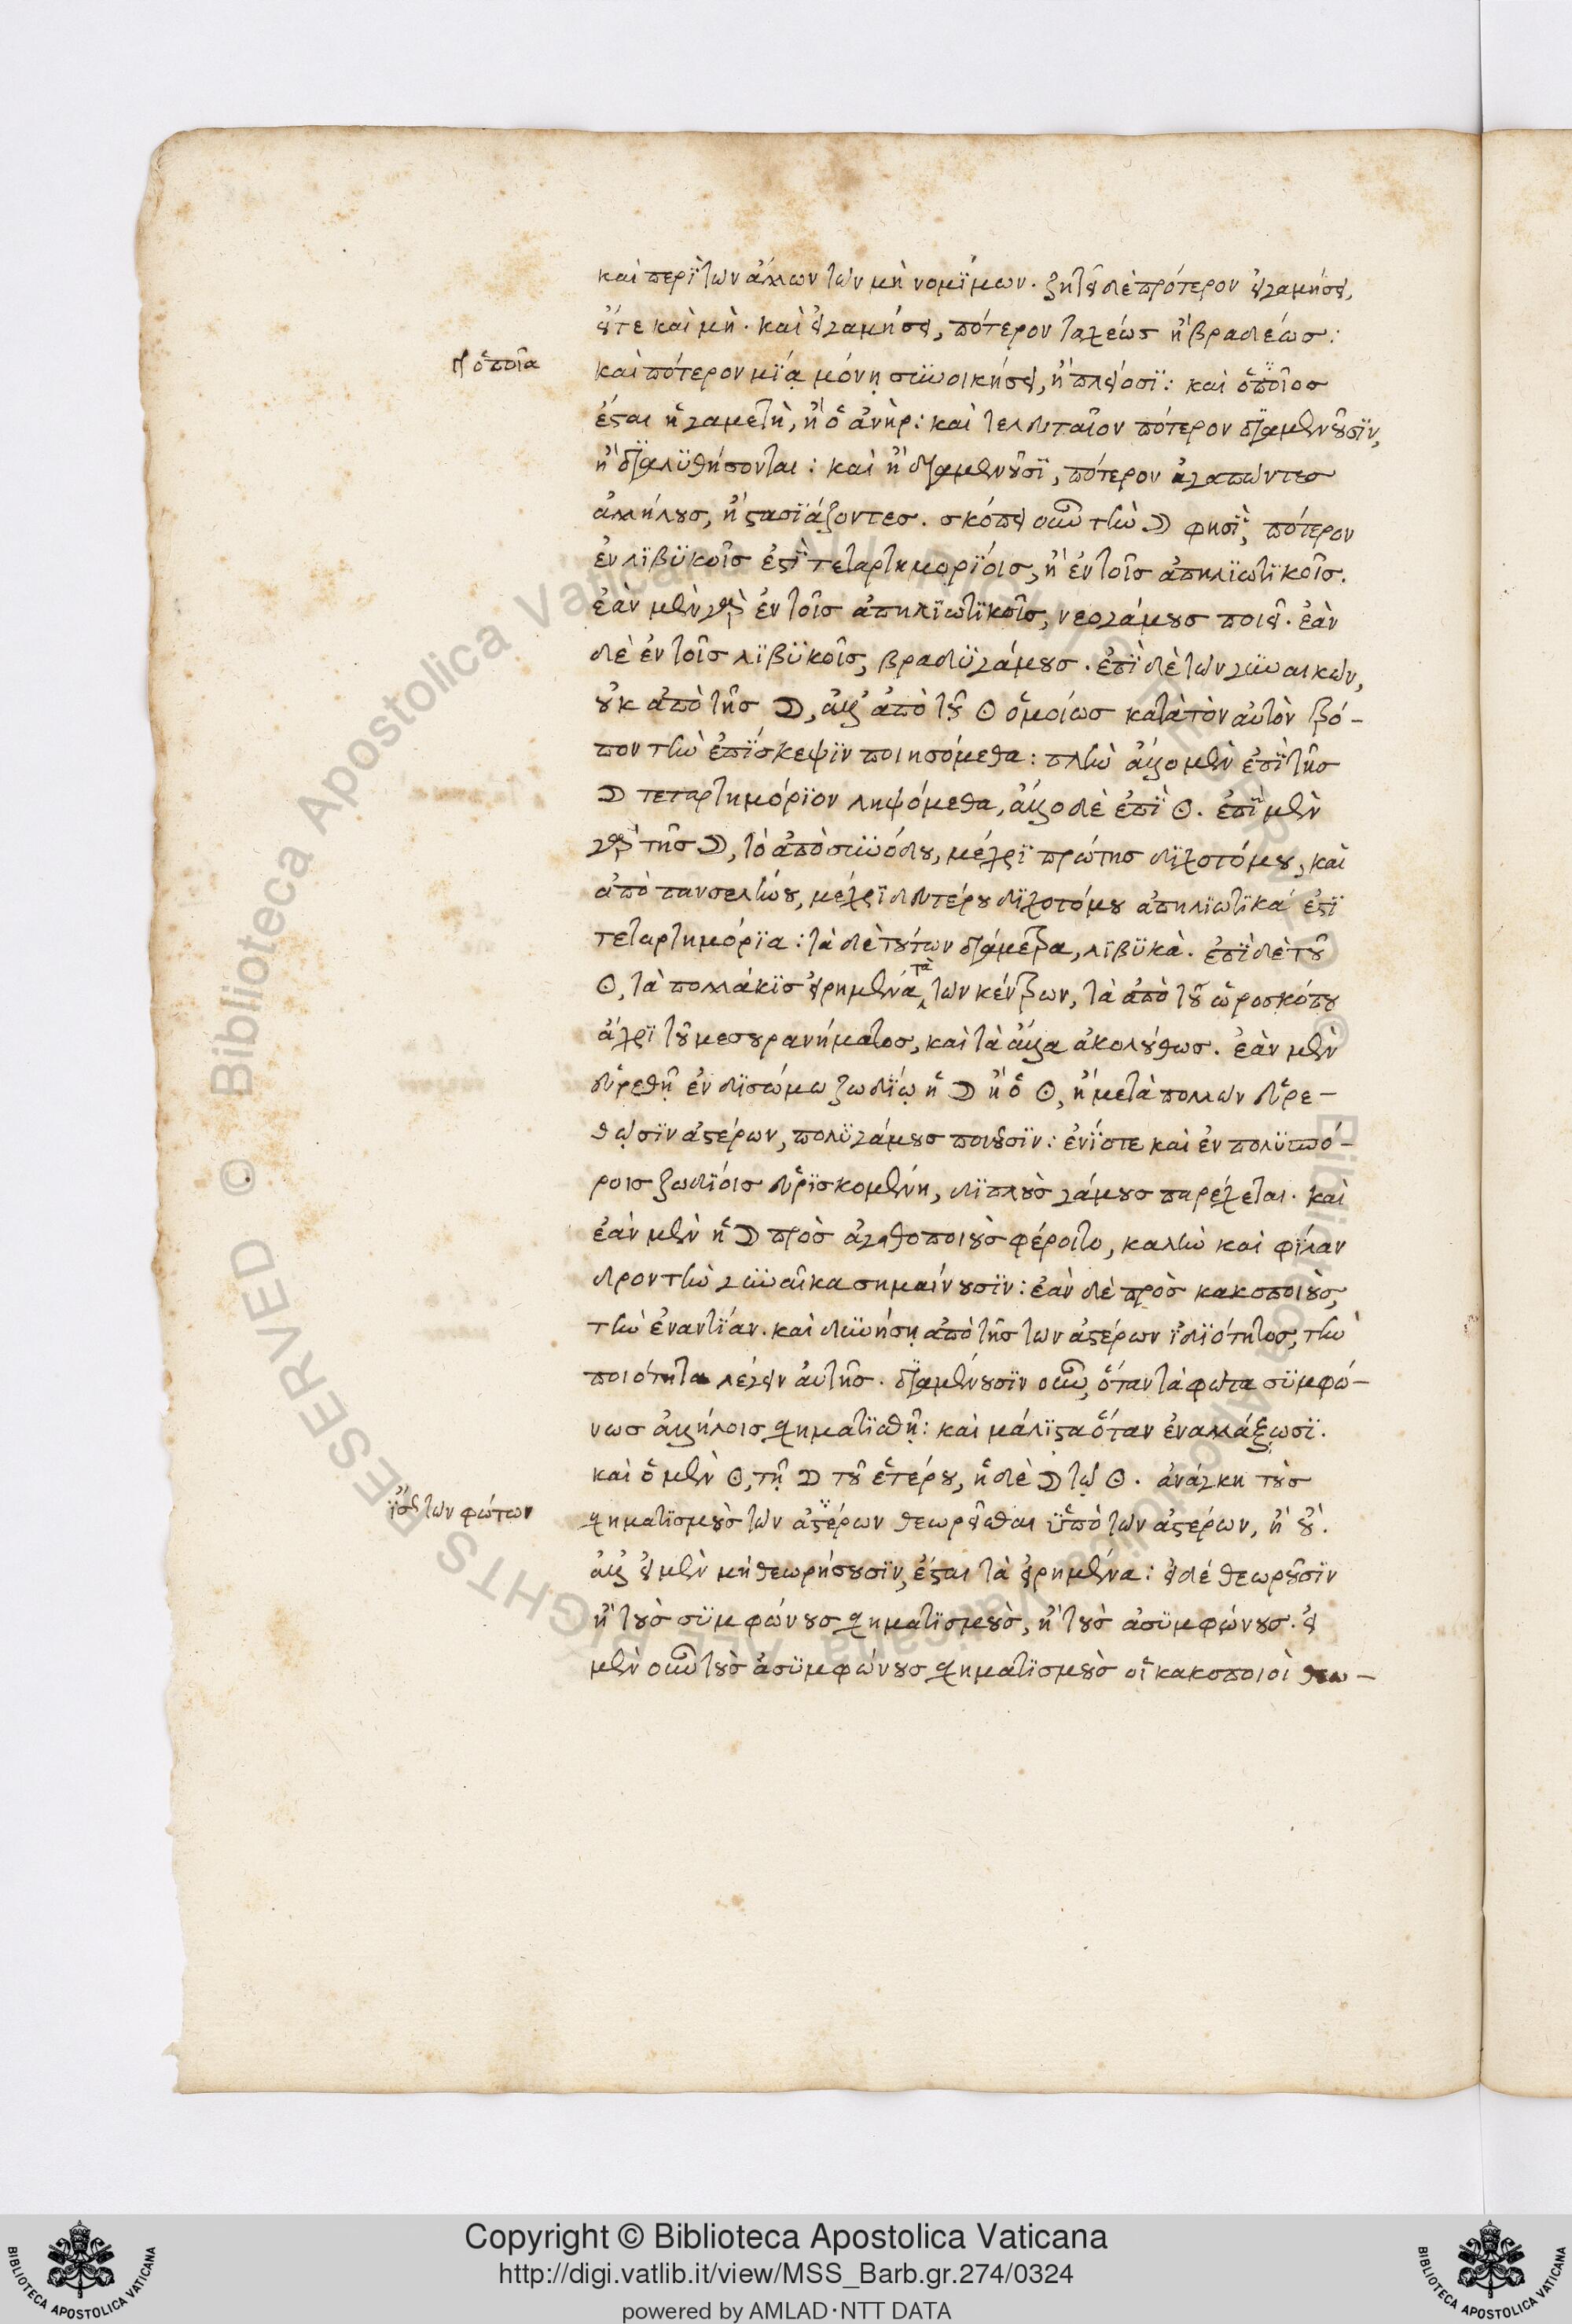 καὶ περὶ τῶν ἄλλων τῶν μὴ νομΐμων. ζητεῖ δὲ πρότερον εἰ γαμήσει,
εἴτε καὶ μὴ. καὶ εἰ γαμήσει, πότερον ταχέως ἢ βραδέως:
ἢ ὁποῖα
καὶ πότερον μϊᾷ μόνῃ συνοικήσει, ἢ πλείοσϊ: καὶ ὁποῖος
ἔσται ἡ γαμετὴ, ἢ ὁ ἀνὴρ: καὶ τελευταῖον πότερον διαμενοῦσϊν,
ἢ διαλϋθήσονται: καὶ ἢ διαμενοῦσϊ, πότερον ἀγαπῶντες
ἀλλήλους, ἢ στασϊάζοντες. σκόπει οὖν τὴν ☽ φησὶ, πότερον
ἐν λϊβϋκοῖς ἐστῒ τεταρτημορϊοις, ἢ ἐν τοῖς ἀπηλϊωτϊκοῖς.
ἐὰν μὲν γὰρ ἐν τοῖς ἀπηλϊωτϊκοῖς, νεογάμους ποιεῖ. ἐὰν
δὲ ἐν τοῖς λϊβϋκοῖς, βραδϋγάμους. ἐπῒ δὲ τῶν γυναικῶν,
οὐκ ἀπὸ τῆς ☽, ἀλλ' ἀπὸ τοῦ ☉ ὁμοίως κατὰ τὸν αὐτὸν τρό-
πον τὴν ἐπΐσκεψϊν ποιησόμεθα: πλὴν ἄλλο μὲν ἐπῒ τῆς
☽ τεταρτημόρϊον ληψόμεθα, ἄλλο δὲ ἐπῒ ☉. ἐπῒ μὲν
γὰρ τῆς ☽, τὸ ἀπὸ συνόδου, μέχρϊ πρώτης δϊχοτόμου, καὶ
ἀπὸ πανσελήνου, μέχρϊ δευτέρου δϊχοτόμου ἀπηλϊωτϊκά ἐστϊ
τεταρτημόρϊα: τὰ δὲ τούτων διάμετρα, λϊβϋκὰ. ἐπῒ δὲ τοῦ
☉, τὰ πολλάκϊς εἰρημένα τὰ τῶν κέντρων, τὰ ἀπὸ τοῦ ὡροσκόπου
ἄχρϊ τοῦ μεσουρανήματος, καὶ τὰ ἄλλα ἀκολούθως. ἐὰν μὲν
εὑρεθῇ ἐν δϊσώμω ζωδΐῳ ἡ ☽ ἢ ὁ ☉, ἢ μετὰ πολλῶν εὑρε-
θῶσϊν ἀστέρων, πολϋγάμους ποιοῦσϊν: ἐνΐοτε καὶ ἐν πολϋσπό-
ροις ζωδΐοις εὑρϊσκομένη, δϊπλοὺς γάμους παρέχεται. καὶ
ἐὰν μὲν ἡ ☽ πρὸς ἀγαθοποιοὺς φέροιτο, καλὴν καὶ φΐλαν
δρον τὴν γυναῖκα σημαίνουσϊν: ἐὰν δὲ πρὸς κακοποιοὺς,
τὴν ἐναντΐαν. καὶ δυνήσῃ ἀπὸ τῆς τῶν ἀστέρων ἰδϊότητος, τὴν
ποιότητα λέγειν αὐτῆς. διαμένουσϊν οὖν, ὅταν τὰ φῶτα σϋμφώ-
νως ἀλλήλοις σχηματϊσθῇ: καὶ μάλϊστα ὅταν ἐναλλάξωσϊ.
καὶ ὁ μὲν ☉, τῇ ☽ τοῦ ἑτέρου, ἡ δὲ ☽ τῷ ☉. ἀνάγκη τοὺς
τῶν φώτων
σχηματϊσμοὺς τῶν ἀστέρων θεωρεῖσθαι ὑπὸ τῶν ἀστέρων, ἢ οὔ.
ἀλλ' εἰ μὲν μὴ θεωρήσουσϊν, ἔσται τὰ εἰρημένα: εἰ δέ θεωροῦσϊν
ἢ τοὺς σϋμφώνους σχηματϊσμοὺς, ἢ τοὺς ἀσϋμφώνους. εἰ
μὲν οὖν τοὺς ἀσϋμφώνους σχηματϊσμοὺς οἱ κακοποιοὶ θεω-
Copyright © Biblioteca Apostolica Vaticana
http://digi.vatlib.it/view/MSS_Barb.gr.274/0324
powered by AMLAD·NTT DATA